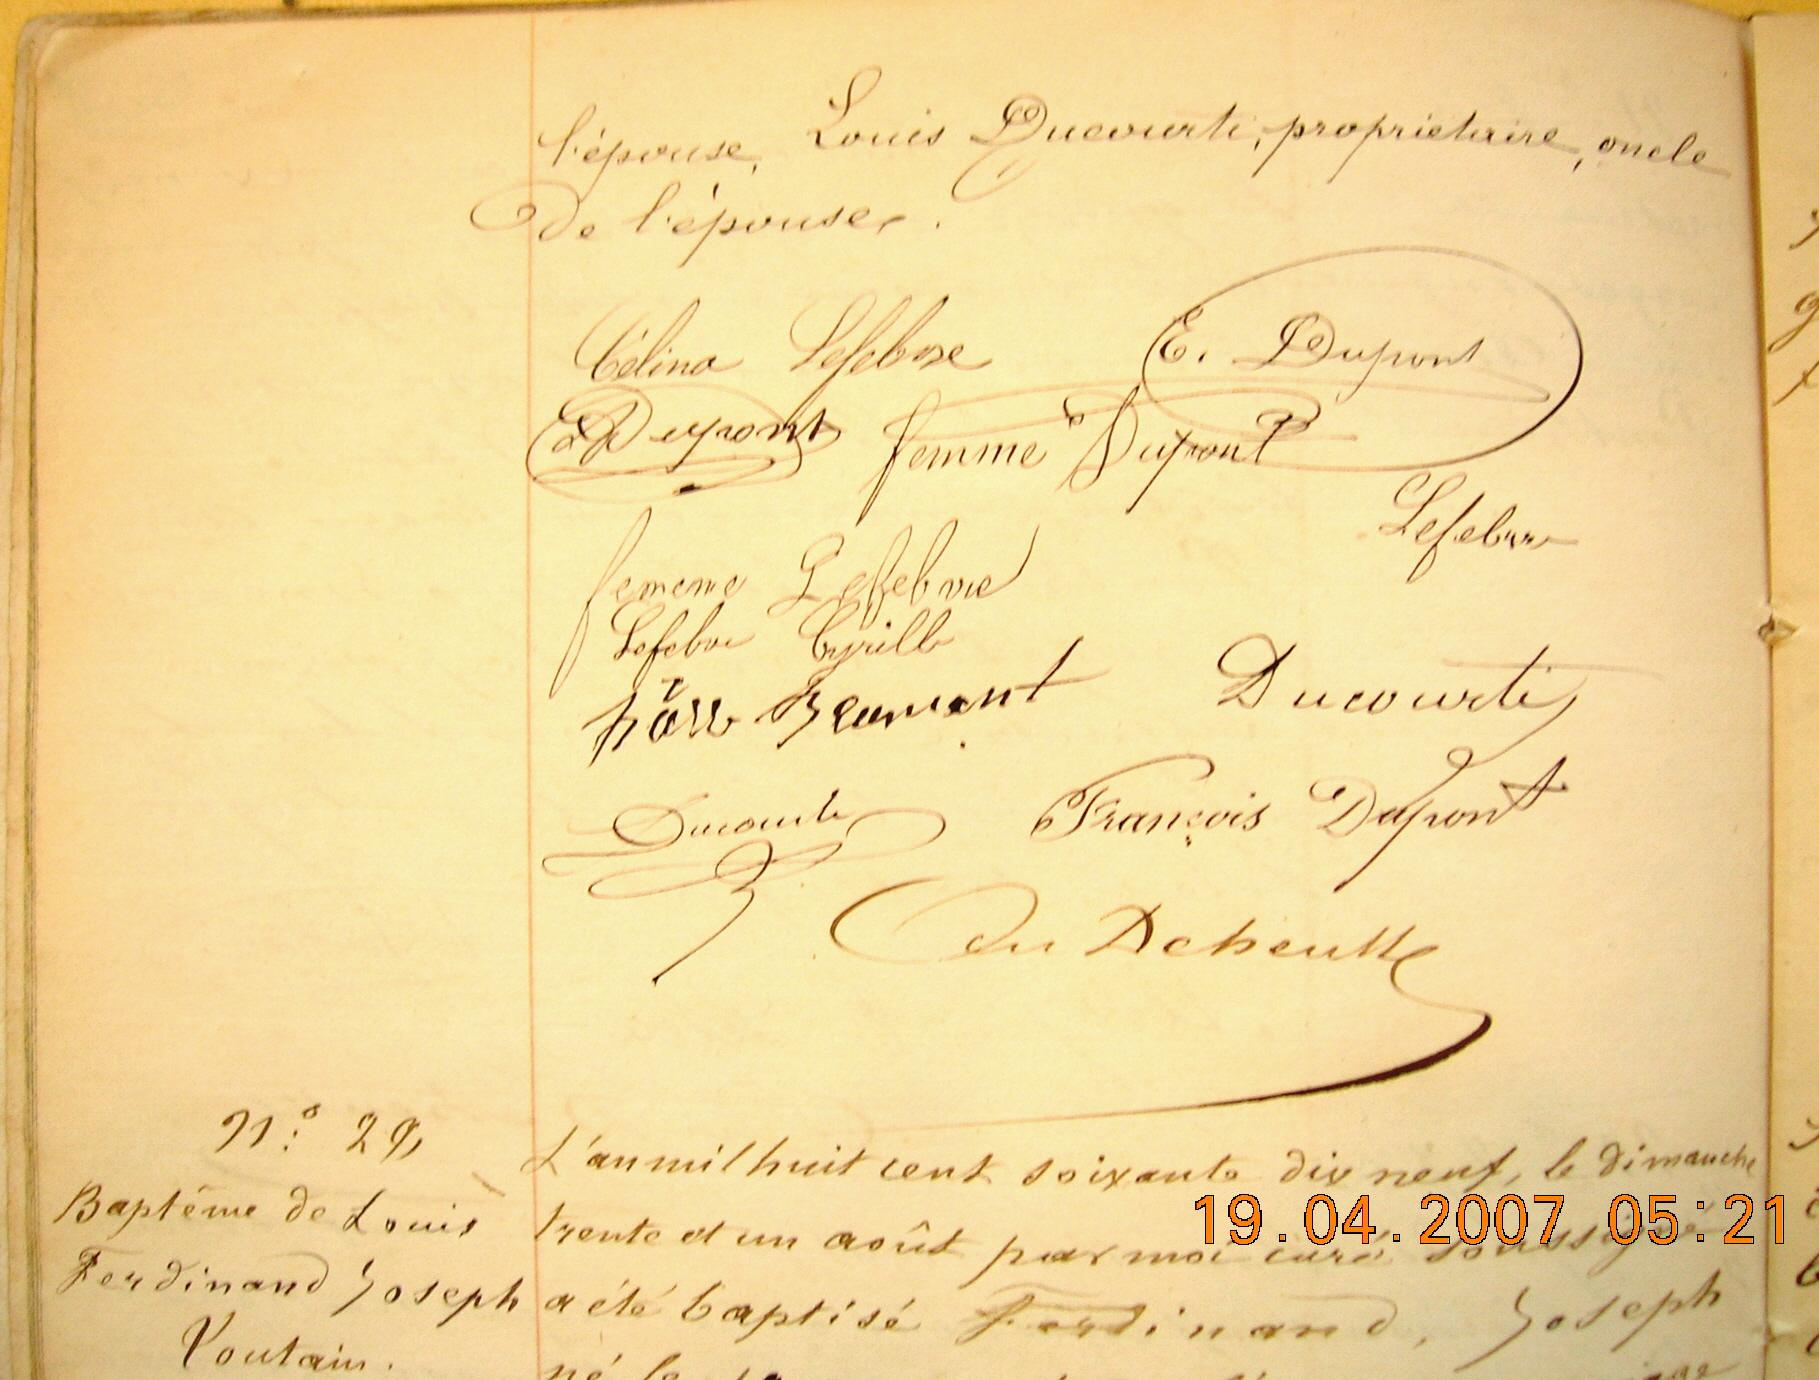 l'épouse, Louis Ducourti, propriétaire, oncle
de l'épouse.
Célina Lefebvre E. Dupont
Dupont femme Dupont
Lefebvre
femme Lefebvre
Lefebvre Cyrille
Ducourti
Ducourti François Dupont
N° 29
Baptême de Louis
Ferdinand Joseph
Voutain.
L'an mil huit cent soixante dix neuf, le dimanche
trente et un août par moi curé soussigné
a été baptisé Ferdinand, Joseph
né le
19.04.2007 05:21